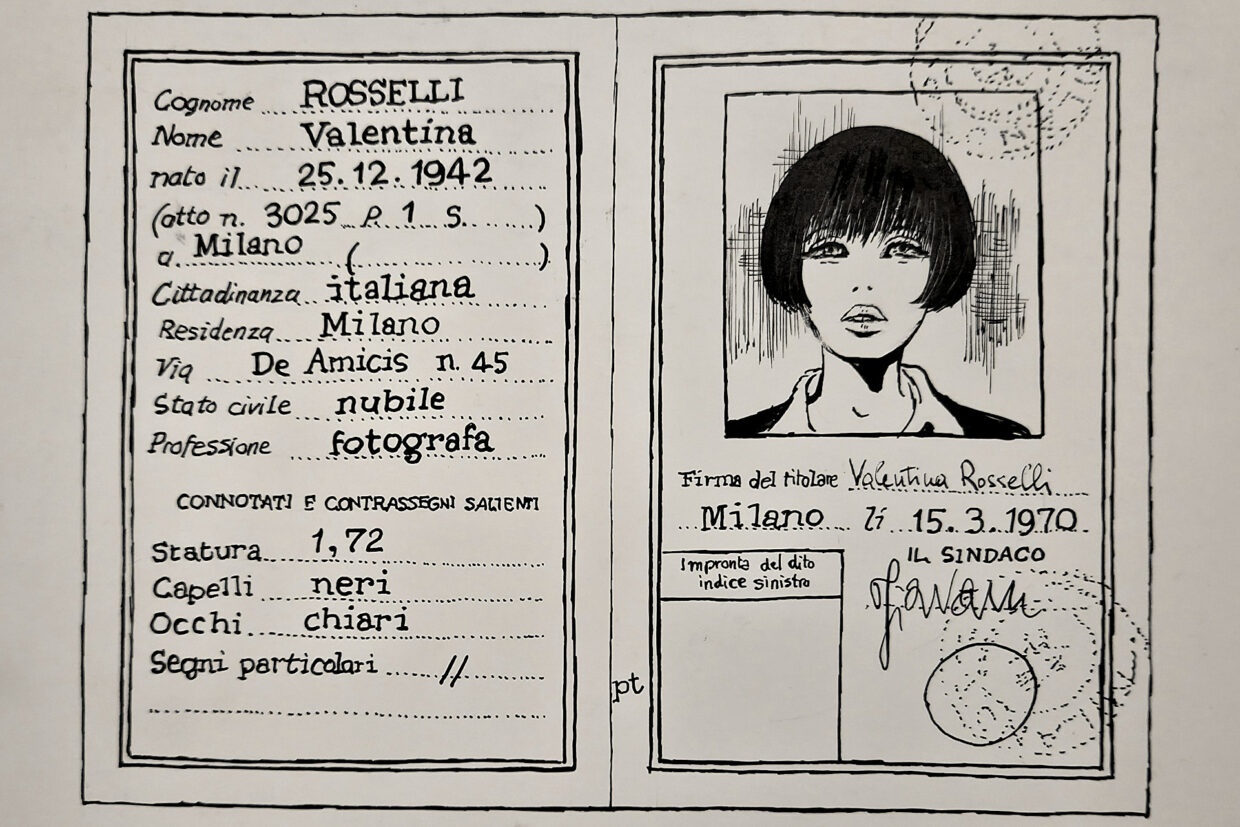 Cognome ROSSELLI
Nome Valentina
nato il 25.12.1942
(atto n. 3025 P. 1 S. )
a Milano ( )
Cittadinanza italiana
Residenza Milano
Via De Amicis n. 45
Stato civile nubile
Professione fotografa
CONNOTATI E CONTRASSEGNI SALIENTI
Statura 1,72
Capelli neri
Occhi chiari
Segni particolari //
pt
Firma del titolare Valentina Rosselli
Milano lì 15.3.1970
IL SINDACO
Impronta del dito
indice sinistro